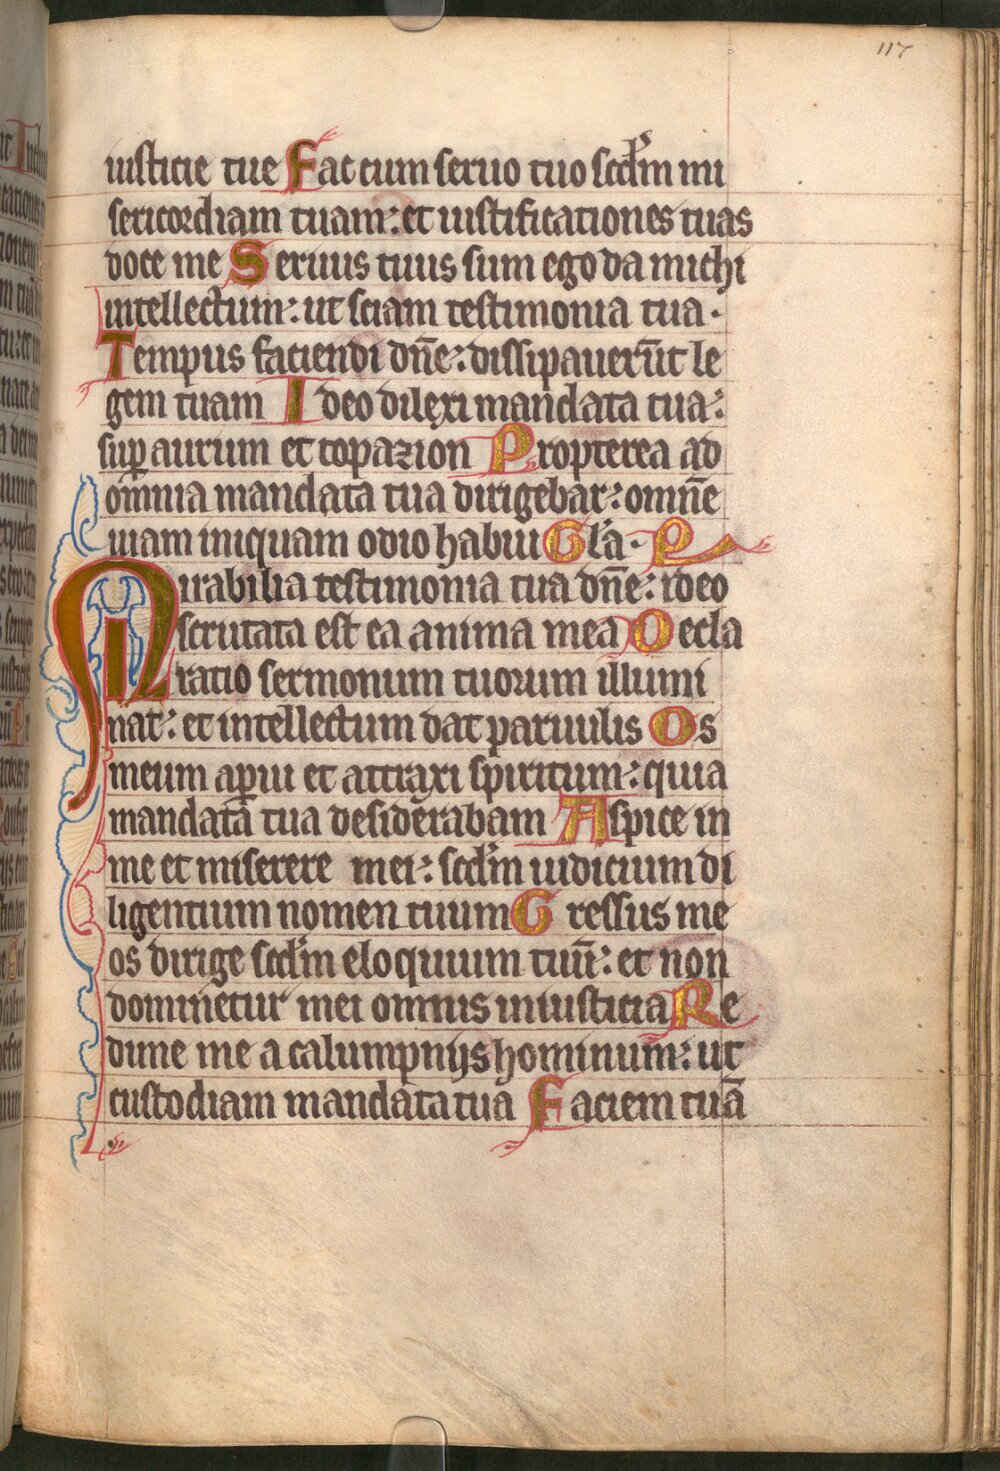 117
iusticie tue Fac cum seruo tuo scdm mi
sericordiam tuam: et iustificationes tuas
doce me Seruus tuus sum ego da michi
intellectum: ut sciam testimonia tua.
Tempus faciendi dñe: dissipauerūt le
gem tuam Ideo dilexi mandata tua:
sup aurum et topazion Propterea ad
omnia mandata tua dirigebar: omnē
uiam iniquam odio habui Glã. P
Mirabilia testimonia tua dñe: ideo
scrutata est ea anima mea Decla
ratio sermonum tuorum illumi
nat: et intellectum dat paruulis Os
meum apui et attraxi spiritum: quia
mandata tua desiderabam Aspice in
me et miserere mei: scdm iudicium di
ligentium nomen tuum Gressus me
os dirige scdm eloquium tuū: et non
dominetur mei omnis iniusticia Re
dime me a calumpnijs hominum: ut
custodiam mandata tua Faciem tuā